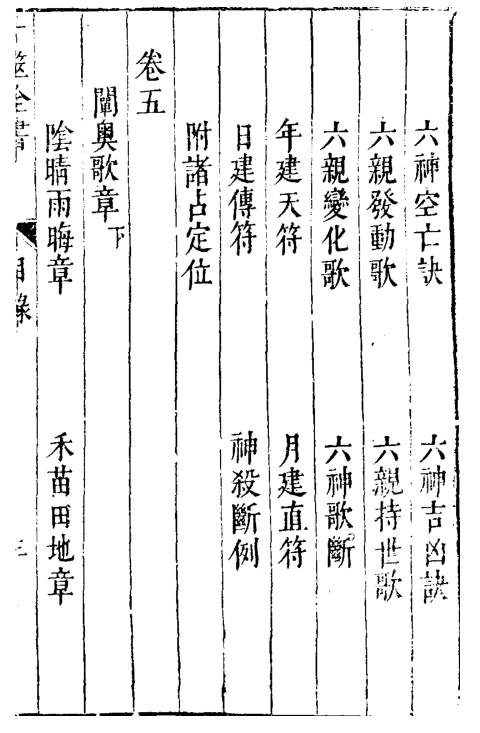 六神空亡訣　六神吉凶訣
六親發動歌　六親持世歌
六親變化歌　六神歌斷
年建天符　月建直符
日建傳符　神殺斷例
附諸占定位
卷五
闡奧歌章下
陰晴雨晦章　禾苗田地章
卜筮全書　目錄　三